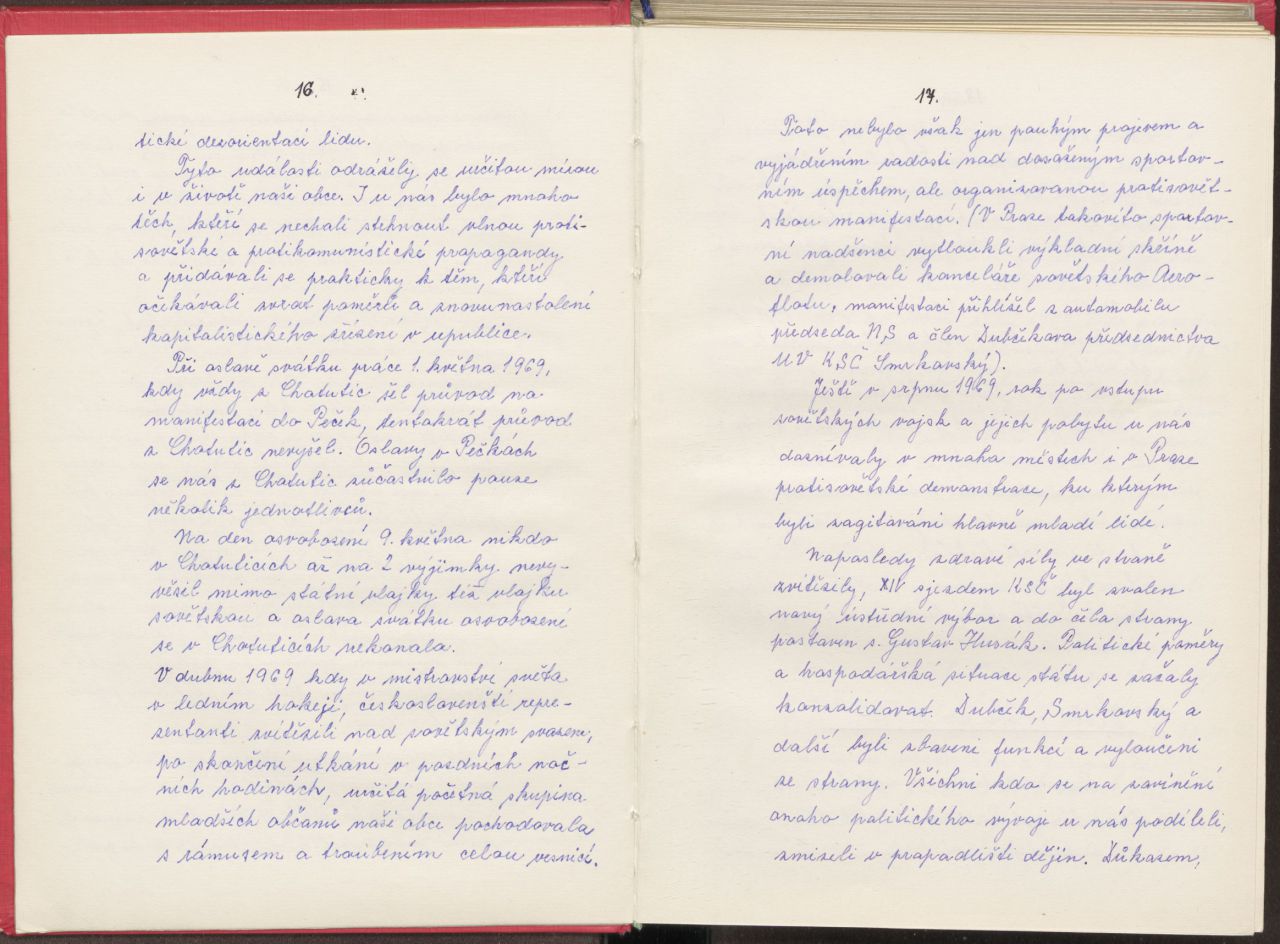 16.
tické desorientaci lidu.
Tyto události odrážely se určitou mírou
i v životě naší obce. I u nás bylo mnoho
těch, kteří se nechali strhnout vlnou proti-
sovětské a protikomunistické propagandy
a přidávali se prakticky k těm, kteří
očekávali zvrat poměrů a znovunastolení
kapitalistického zřízení v republice.
Při oslavě svátku práce 1. května 1969,
kdy vždy z Chotutic šel průvod na
manifestaci do Peček, tentokrát průvod
z Chotutic nevyšel. Oslavy v Pečkách
se nás z Chotutic zúčastnilo pouze
několik jednotlivců.
Na den osvobození 9. května nikdo
v Chotuticích až na 2 výjimky nevy-
věsil mimo státní vlajky též vlajku
sovětskou a oslava svátku osvobození
se v Chotuticích nekonala.
V dubnu 1969 kdy v mistrovství světa
v ledním hokeji, českoslovenští repre-
sentanti zvítězili nad sovětským svazem,
po skončení utkání v pozdních noč-
ních hodinách, určitá početná skupina
mladších občanů naší obce pochodovala
s rámusem a troubením celou vesnicí.
17.
Toto nebylo však jen pouhým projevem a
vyjádřením radosti nad dosaženým sportov-
ním úspěchem, ale organizovanou protisovět-
skou manifestací. (V Praze takovíto sportov-
ní nadšenci vytloukli výkladní skříně
a demolovali kanceláře sovětského Aero-
flotu, manifestaci přihlížel z automobilu
předseda N,S a člen Dubčekova předsednictva
ÚV KSČ Smrkovský).
Ještě v srpnu 1969, rok po vstupu
sovětských vojsk a jejich pobytu u nás
doznívaly v mnoha městech i v Praze
protisovětské demonstrace, ku kterým
byli zagitováni hlavně mladí lidé.
Naposledy zdravé síly ve straně
zvítězily, XIV sjezdem KSČ byl zvolen
nový ústřední výbor a do čela strany
postaven s. Gustav Husák. Politické poměry
a hospodářská situace státu se začaly
konzolidovat. Dubček, Smrkovský a
další byli zbaveni funkcí a vyloučeni
ze strany. Všichni kdo se na zavinění
onoho politického vývoje u nás podíleli,
zmizeli v propadlišti dějin. Důkazem,